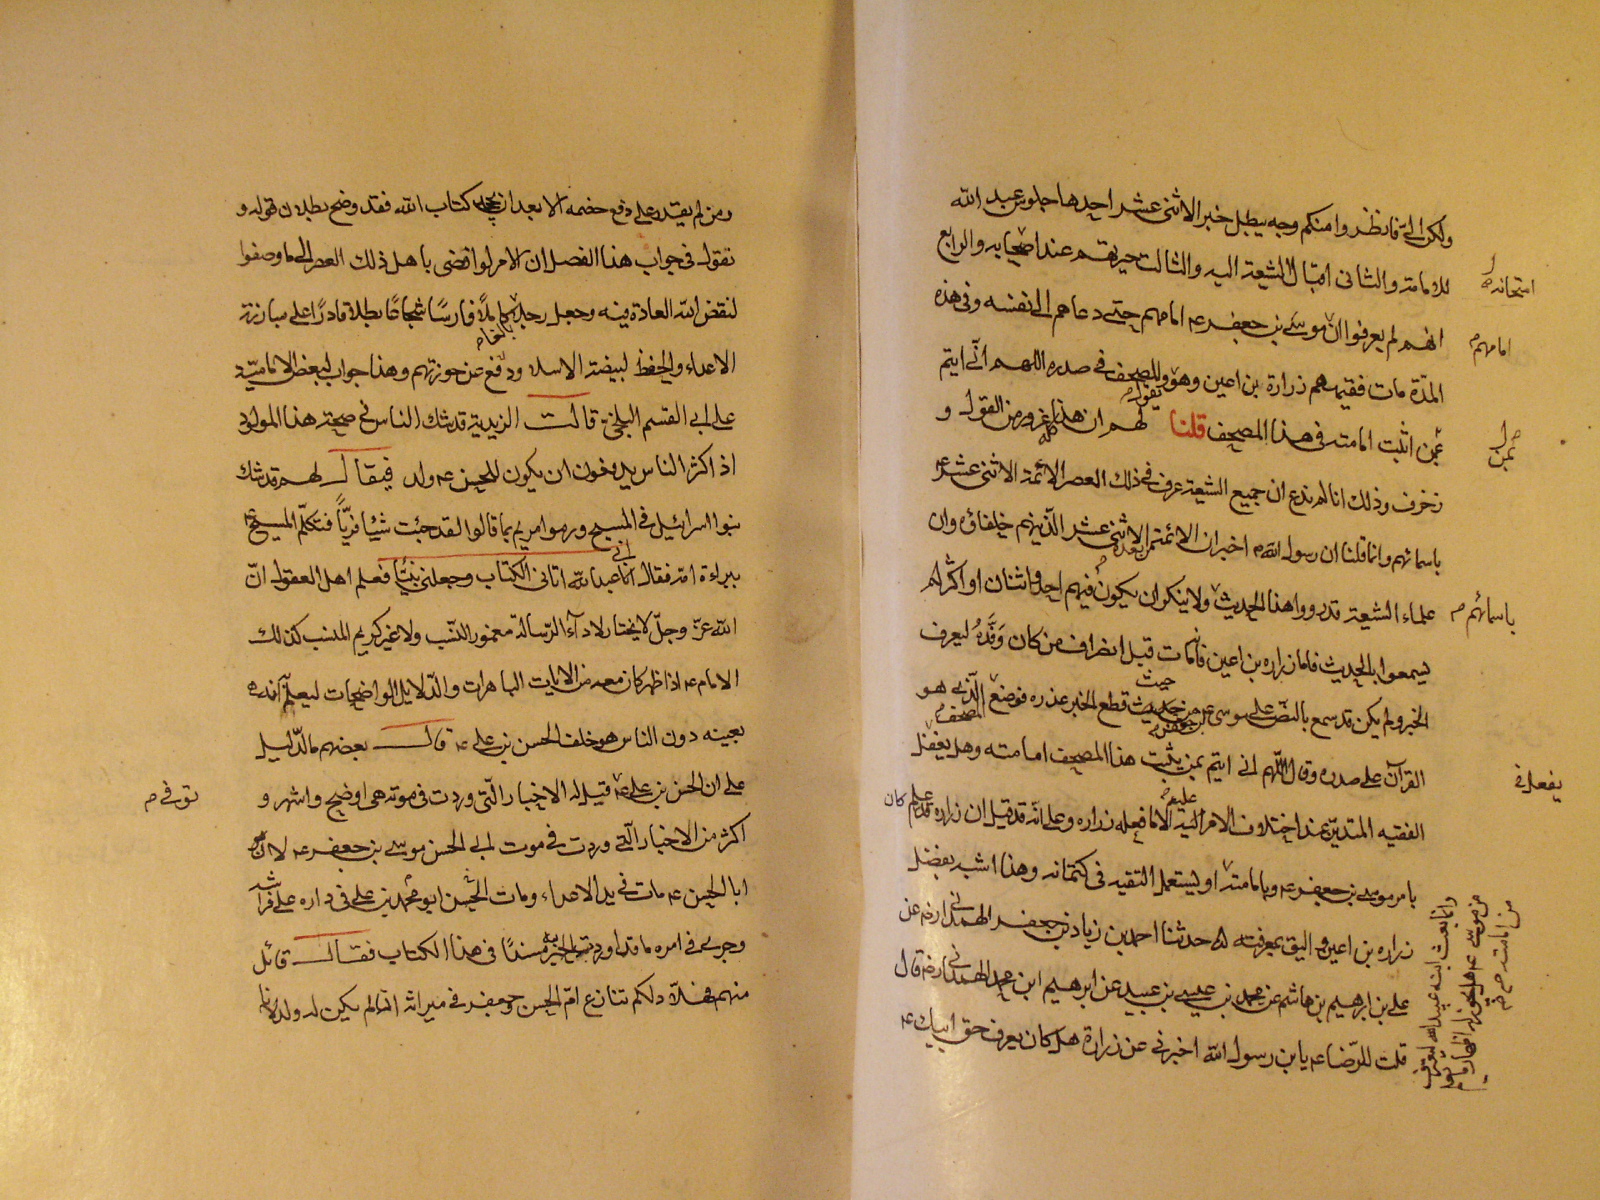 ولكن الى فانظروا منكم وجه يبطل خبر الاثنى عشر احدها جلوس عبد الله
للامامة والثانى اقبال الشيعة اليه والثالث حيرتهم عند امتحانه والرابع
انهم لم يعرفوا ان موسى بن جعفر ع امامهم حتى دعاهم الى نفسه وفى هذه
المدّة مات فقيههم زرارة بن اعين وهو يقول والمصحف فى صدره اللهم انّى ايتم
بمن اثبت امامته فى هذا المصحف قلنا لهم ان هذا كله غرور من القول و
زخرف وذلك انا لم ندع ان جميع الشيعة عرف فى ذلك العصر الائمة الاثنى عشر ع
باسمائهم وانما قلنا ان رسول الله اخبر ان الائمة بعده الاثنى عشر الّذين هم خلفاؤه وان
علماء الشيعة قد رووا هذا الحديث ولا ينكر ان يكون فيهم احد او اثنان او اكثر لم
يسمعوا بالحديث فاما زراره بن اعين فانه مات قبل انصراف من كان وفّده ليعرف
الخبر ولم يكن قد سمع بالنصّ على موسى بن جعفر من حيث قطع الخبر عذره فوضع المصحف الّذى هو
القرآن على صدره وقال اللّهم انى ايتم بمن يثبت هذا المصحف امامته وهل يفعل
الفقيه المتديّن عند اختلاف الامر عليه الا ما فعله زراره وعلى انّه قد قيل ان زراره قد كان علم
بامر موسى بن جعفر ع وبامامته او يستعمل التقيه فى كتمانه وهذا اشبه بفضل
زراره بن اعين واليق بمعرفته حدثنا احمد بن زياد بن جعفر الهمدانى رض عن
على بن ابرهيم بن هاشم عن محمد بن عيسى بن عبيد عن ابرهيم ابن محمد الهمدانى رض قال
قلت للرّضا ع يا بن رسول الله اخبرنى عن زرارة هل كان يعرف حق ابيك ع
امتحانه
امامهم
بمن
باسمائهم
يفعل
وانما بعث ابنه عبيد الله ليتعرف
من موسى ع هل يجوز له اظهار ما يعلم
من امامته
ومن لم يقدر على دفع خصمه الا بعد ان يجحد كتاب الله فقد وضح بطلان قوله و
نقول فى جواب هذا الفصل ان الامر لو افضى باهل ذلك العصر الى ما وصفوا
لنقض الله العادة فيه وجعل رجلا بالغا كاملا فارسًا شجاعًا بطلا قادرًا على مبارزة
الاعداء والحفظ لبيضة الاسلام ودفع عن حوزتهم وهذا جواب لبعض الاماميّة
على ابى القسم البلخى قالت الزيدية قد شك الناس فى صحة هذا المولود
اذ اكثر الناس يدفعون ان يكون للحسن ع ولد فيقال لهم قد شك
بنوا اسرائيل فى المسيح ورموا مريم بما قالوا لقد جئت شيئا فريّاً فتكلّم المسيح ع
ببراءة امّه فقال انى عبد الله اتانى الكتاب وجعلنى نبيًّا فعلم اهل العقول انّ
الله عزّ وجلّ لا يختار لاداء الرّسالة مغمور النسّب ولا غير كريم المنسب كذلك
الامام ع اذا ظهر كان معه من الايات الباهرات والدّلايل الواضحات ليعلم انه
بعينه دون الناس هو خلف الحسن بن على ع قال بعضهم ما الدّليل
على ان الحسن بن على ع توفى قيل له الاخبار الّتى وردت فى موته هى اوضح واشهر و
اكثر من الاخبار الّتى وردت فى موت ابى الحسن موسى بن جعفر ع لان
ابا الحسن ع مات فى يد الاعداء ومات الحسن ابو محمد بن على فى داره على فراشه
وجرى فى امره ما قد اوردت الخبر به مسندًا فى هذا الكتاب فقال قائل
منهم فهلّا دلكم تنازع امّ الحسن وجعفر فى ميراثه انه لم يكن له ولد لانا
توفى